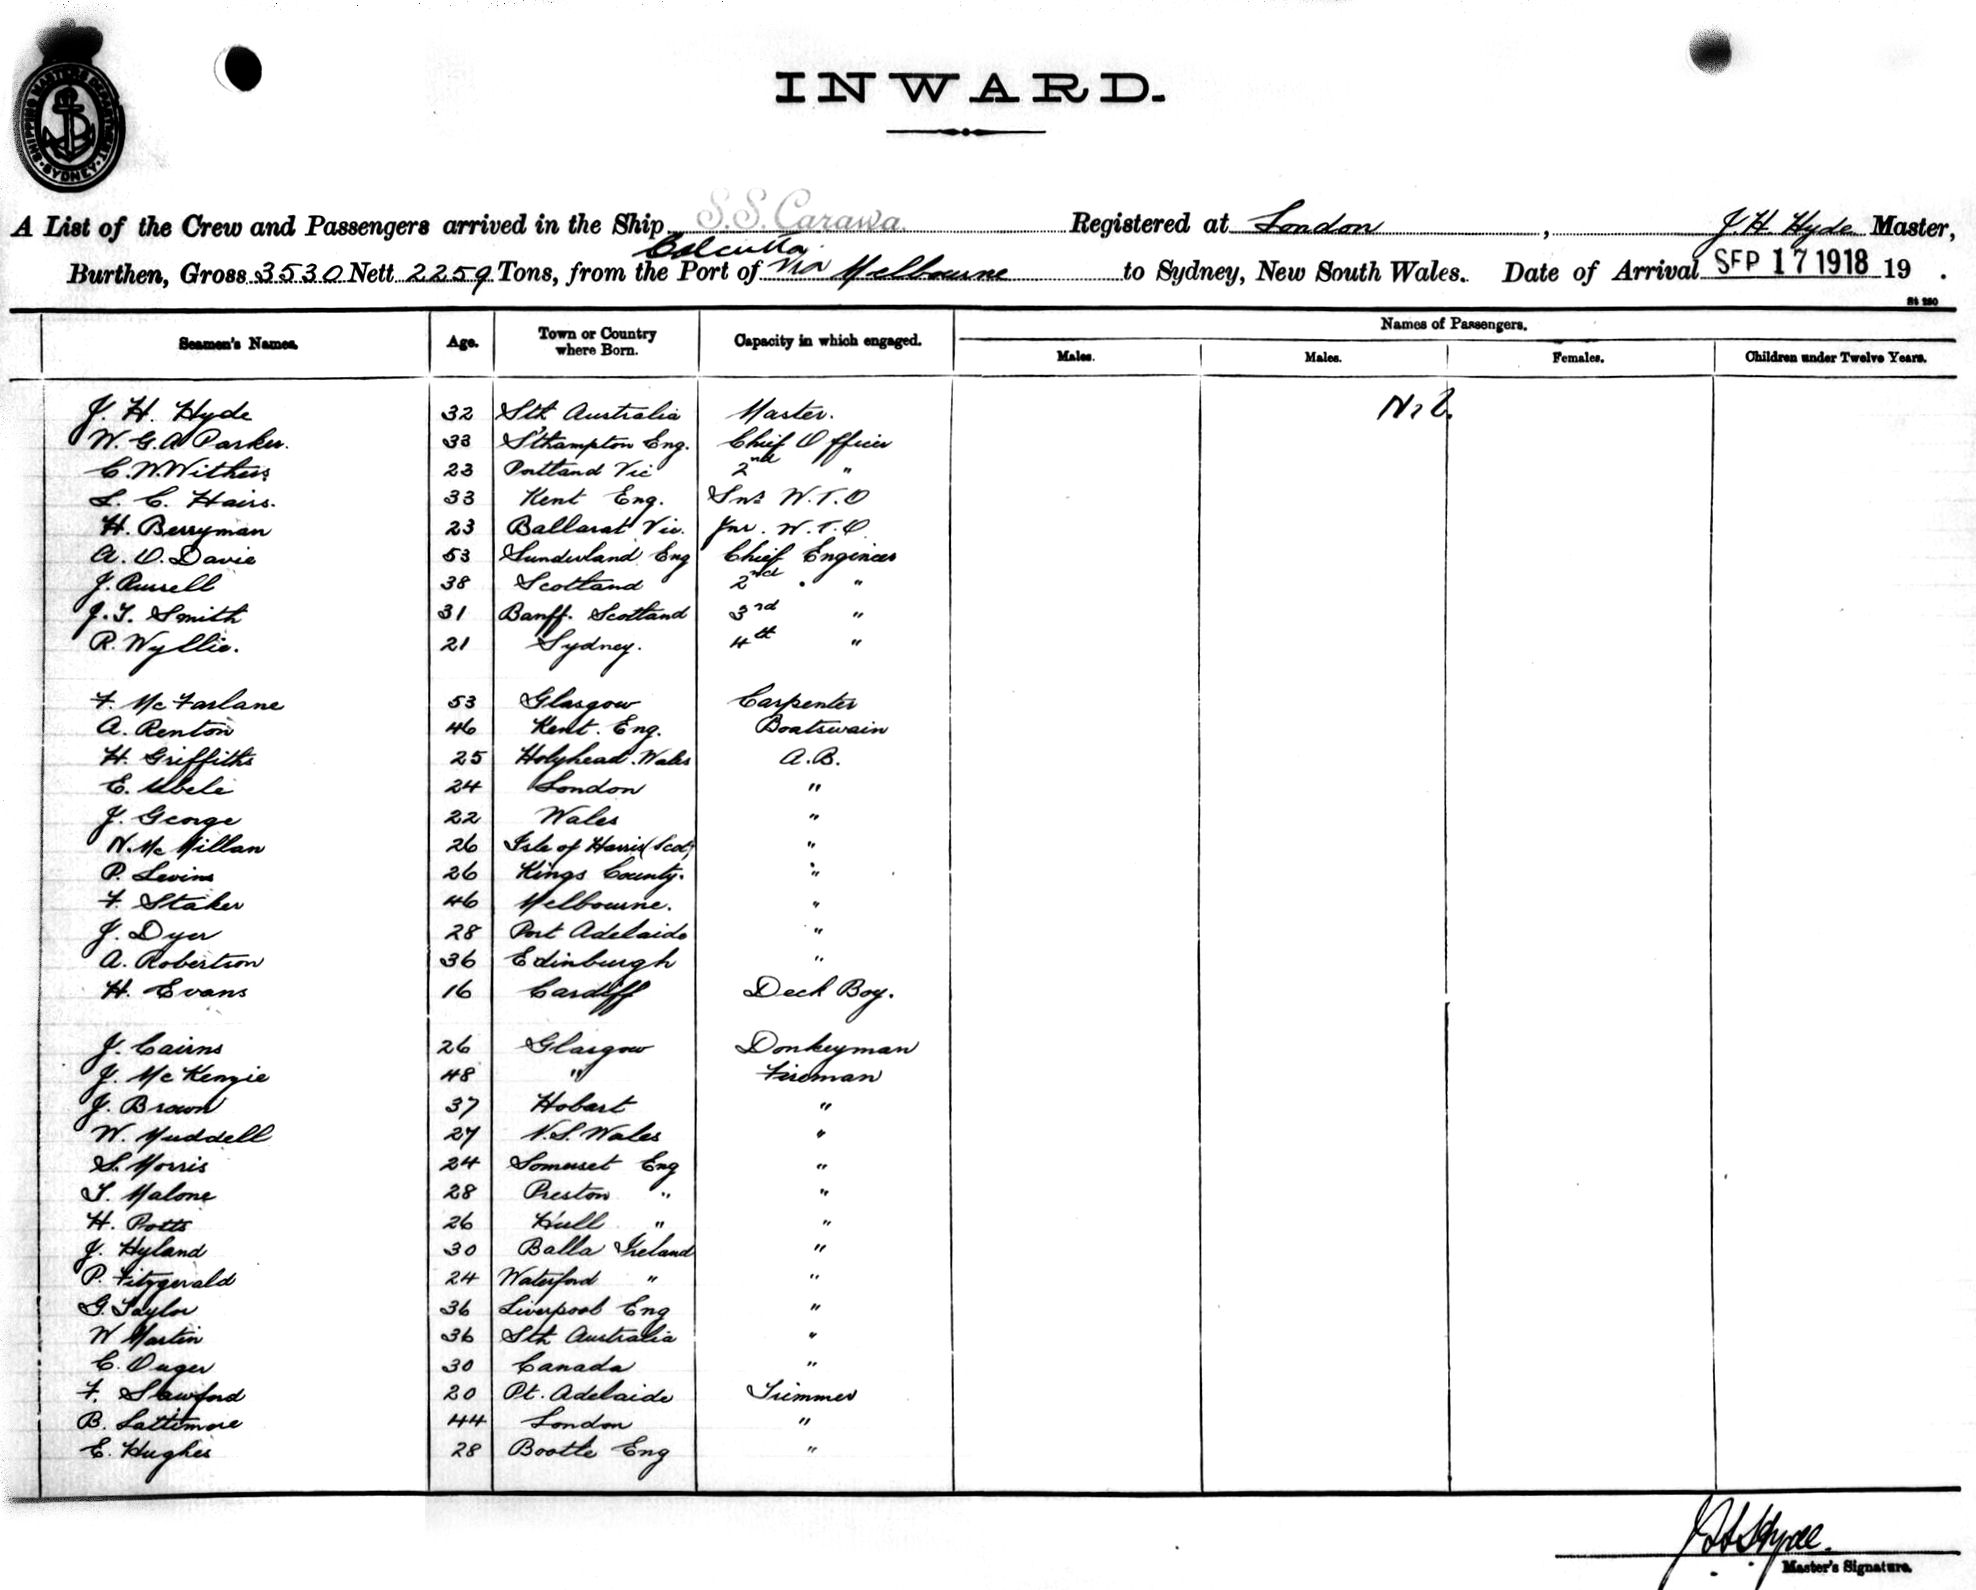 SHIPPING MASTER'S DEPARTMENT · SYDNEY ·
INWARD.
A List of the Crew and Passengers arrived in the Ship S.S. Carawa. Registered at London, J. H. Hyde Master,
Calcutta
Burthen, Gross 3530 Nett 2259 Tons, from the Port of via Melbourne to Sydney, New South Wales. Date of Arrival SEP 17 1918 19 .
St 280
Seamen's Names. Age. Town or Country where Born. Capacity in which engaged. Names of Passengers.
Males. Males. Females. Children under Twelve Years.
J. H. Hyde 32 Sth Australia Master. Nil.
W. G. A Parker. 33 S'thampton Eng. Chief Officer
C. W. Withers 23 Portland Vic 2nd "
L. C. Hairs. 33 Kent Eng. Snr W.T.O
H. Berryman 23 Ballarat Vic. Jnr. W.T.O.
A. O. Davie 53 Sunderland Eng Chief Engineer
J. Russell 38 Scotland 2nd "
J. T. Smith 31 Banff. Scotland 3rd "
R. Wyllie. 21 Sydney. 4th "
F. McFarlane 53 Glasgow Carpenter
A. Renton 46 Kent. Eng. Boatswain
H. Griffiths 25 Holyhead. Wales A.B.
E. 24 London "
J. George 22 Wales "
N. McMillan 26 Isle of Harris (Scot) "
P. Levins 26 Kings County. "
F. Staker 46 Melbourne. "
J. Dyer 28 Port Adelaide "
A. Robertson 36 Edinburgh "
H. Evans 16 Cardiff Deck Boy.
J. Cairns 26 Glasgow Donkeyman
J. McKenzie 48 " Fireman
J. Brown 37 Hobart "
W. Muddell 27 N.S. Wales "
S. Morris 24 Somerset Eng "
T. Malone 28 Preston " "
H. Potts 26 Hull " "
J. Hyland 30 Balla Ireland "
P. Fitzgerald 24 Waterford " "
G. Taylor 36 Liverpool Eng "
W Martin 36 Sth Australia "
C. 30 Canada "
F. Slawford 20 Pt. Adelaide Trimmer
B. Lattimore 44 London "
E. Hughes 28 Bootle Eng "
J H Hyde.
Master's Signature.